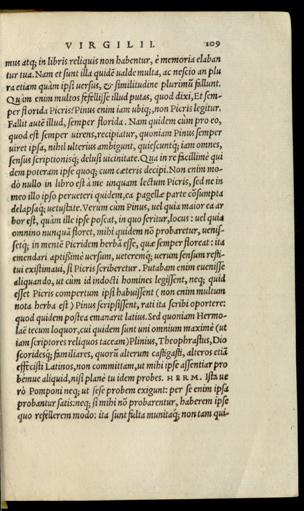 VIRGILII. 109
mus atq; in libris reliquis non habentur, è memoria elaban
tur tua. Nam et sunt illa quidē ualde multa, ac nescio an plu
ra etiam quàm ipsi uersus, & similitudine plurimū fallunt.
Quem enim multos fefellisse illud putas, quod dixi, Et sem-
per florida Picris? Pinus enim iam ubiq;, non Picris legitur.
Fallit autē illud, semper florida. Nam quidem cùm pro eo,
quod est semper uirens, recipiatur, quoniam Pinus semper
uiret ipsa, nihil ulterius ambigunt, quiescuntq; iam omnes,
sensus scriptionisq; delusi uicinitate. Qua in re facillimè qui
dem poteram ipse quoq; cum cæteris decipi. Non enim mo-
dò nullo in libro est à me unquam lectum Picris, sed ne in
meo illo ipso peruetери quidem, ea pagellæ parte cōsumpta
delapsaq; uetustate. Verum cum Pinus, uel quia maior ea ar
bor est, quàm ille ipse poscat, in quo seritur, locus: uel quia
omnino nunquā floret, mihi quidem nō probaretur, uenis-
setq; in mentē Picridem herbā esse, quæ semper floreat: ita
emendari aptissimè uersum, ueteremq; uerum sensum resti-
tui existimaui, si Picris scriberetur. Putabam enim euenisse
aliquando, ut cùm id indocti homines legissent, neq; quid
esset Picris compertum ipsi habuissent (non enim multum
nota herba est) Pinus scripsissent, rati ita scribi oportere:
quod quidem postea emanarit latius. Sed quoniam Hermo-
laë tecum loquor, cui quidem sunt uni omnium maximè (ut
iam scriptores reliquos taceam) Plinius, Theophrastus, Dio
scoridesq; familiares, quorū alterum castigasti, alteros etiā
effecisti Latinos, non committam, ut mihi ipse assentiar pro
bémue aliquid, nisi planè tu idem probes. HERM. Ista ue
rò Pomponi neq; ut sese probem exigunt: per se enim ipsa
probantur satis: neq; si mihi nō probarentur, haberem ipse
quo refellerem modo: ita sunt fulta munitaq; non tam qui-